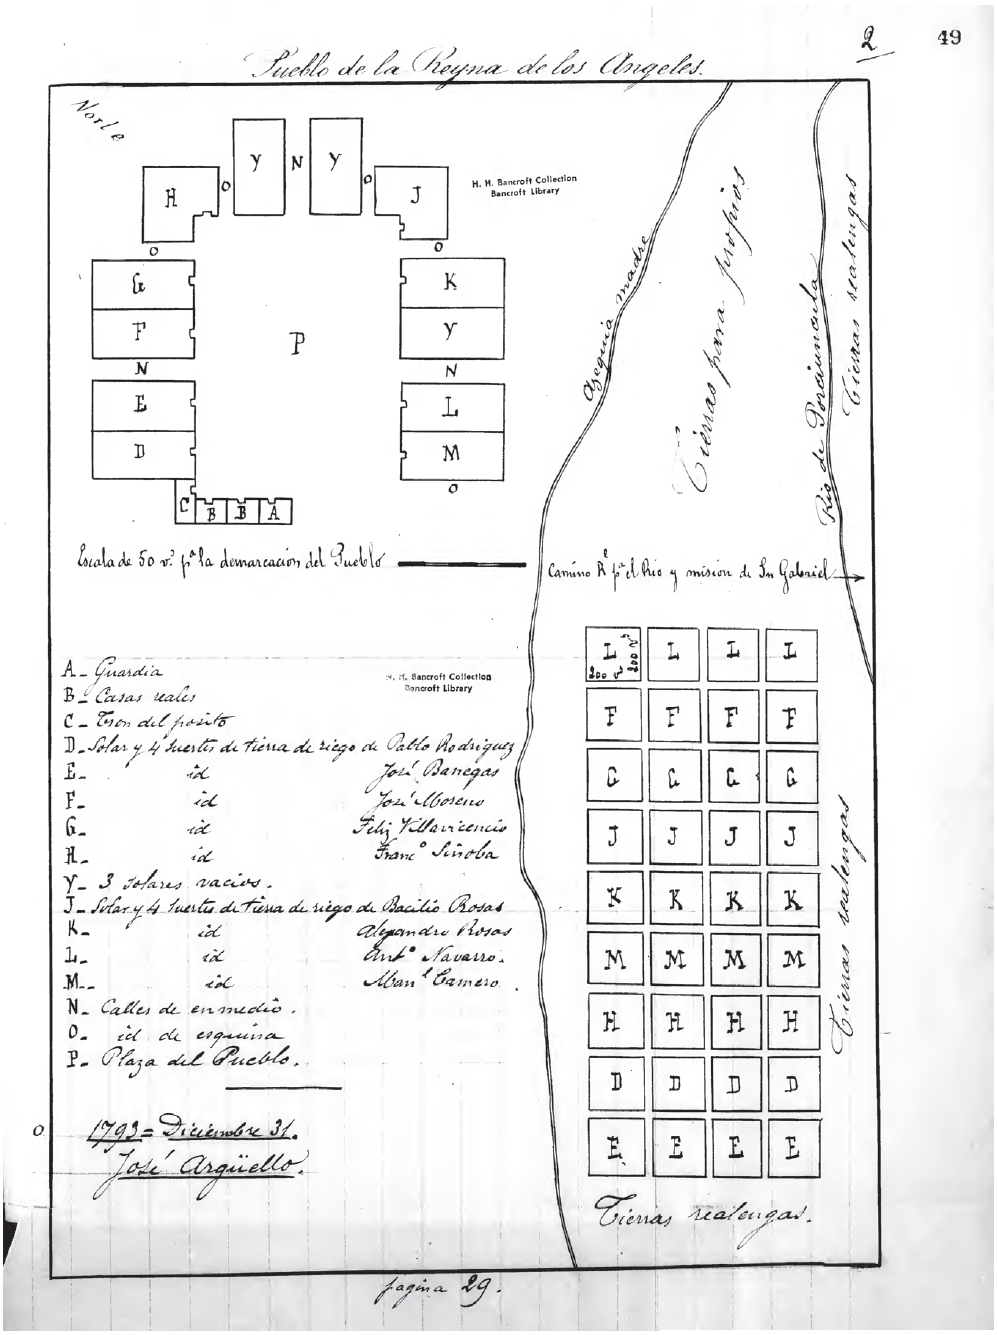 2
49
Pueblo de la Reyna de los Angeles.
Norte
H. H. Bancroft Collection
Bancroft Library
Y N Y
H O O J
O O
G K
F P Y
N N
E L
D M
O
C B B A
Azequia madre
Tierras para propios
Rio de Porciuncula
Tierras realengas
Escala de 50 vs. pa la demarcación del Pueblo
Camino Rl pa el Rio y misión de Sn Gabriel
H. H. Bancroft Collection
Bancroft Library
A_ Guardia
B_ Casas reales
C_ Tron del posito
D_ Solar y 4 suertes de tierra de riego de Pablo Rodriguez
E_ id José Banegas
F_ id José Moreno
G_ id Feliz Villavicencio
H_ id Franco Siñoba
Y_ 3 solares vacios.
J_ Solar y 4 suertes de tierra de riego de Bacilio Rosas
K_ id Alejandro Rosas
L_ id Anto Navarro.
M_ id Manl Camero.
N_ Calles de enmedio.
O_ id de esquina
P_ Plaza del Pueblo.
O
1793= Diciembre 31.
José Argüello.
L L L L
200 vs 200 vs
F F F F
G G G G
J J J J
K K K K
M M M M
H H H H
D D D D
E E E E
Tierras realengas
Tierras realengas.
pagina 29.